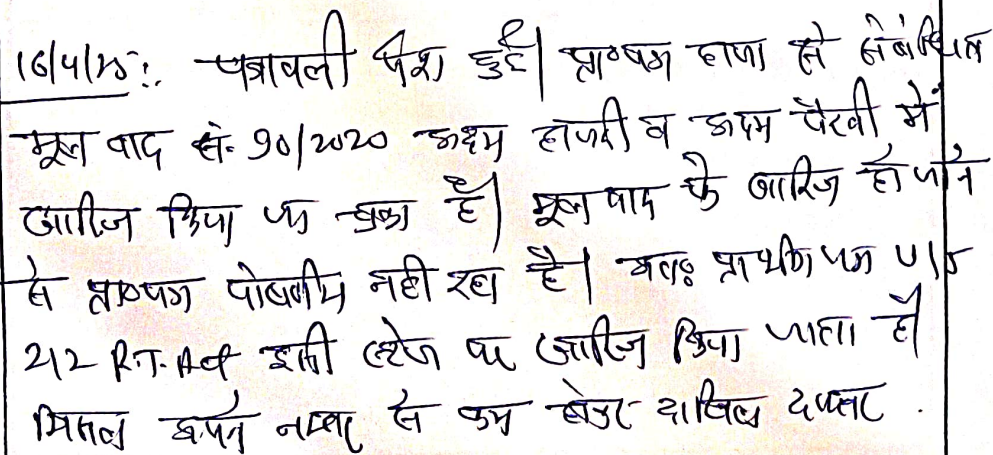 16/4/25:. पत्रावली पेश हुई। प्रा०पत्र हाजा से संबंधित
मूल वाद सं. 90/2020 अदम हाजरी व अदम पैरवी में
खारिज किया जा चुका है। मूल वाद के खारिज हो जाने
से प्रा०पत्र पोषणीय नहीं रहा है। अतः प्रार्थना पत्र U/S
212 R.T. Act इसी स्टेज पर खारिज किया जाता है।
मिसल नम्बर से कम होकर दाखिल दफ्तर .